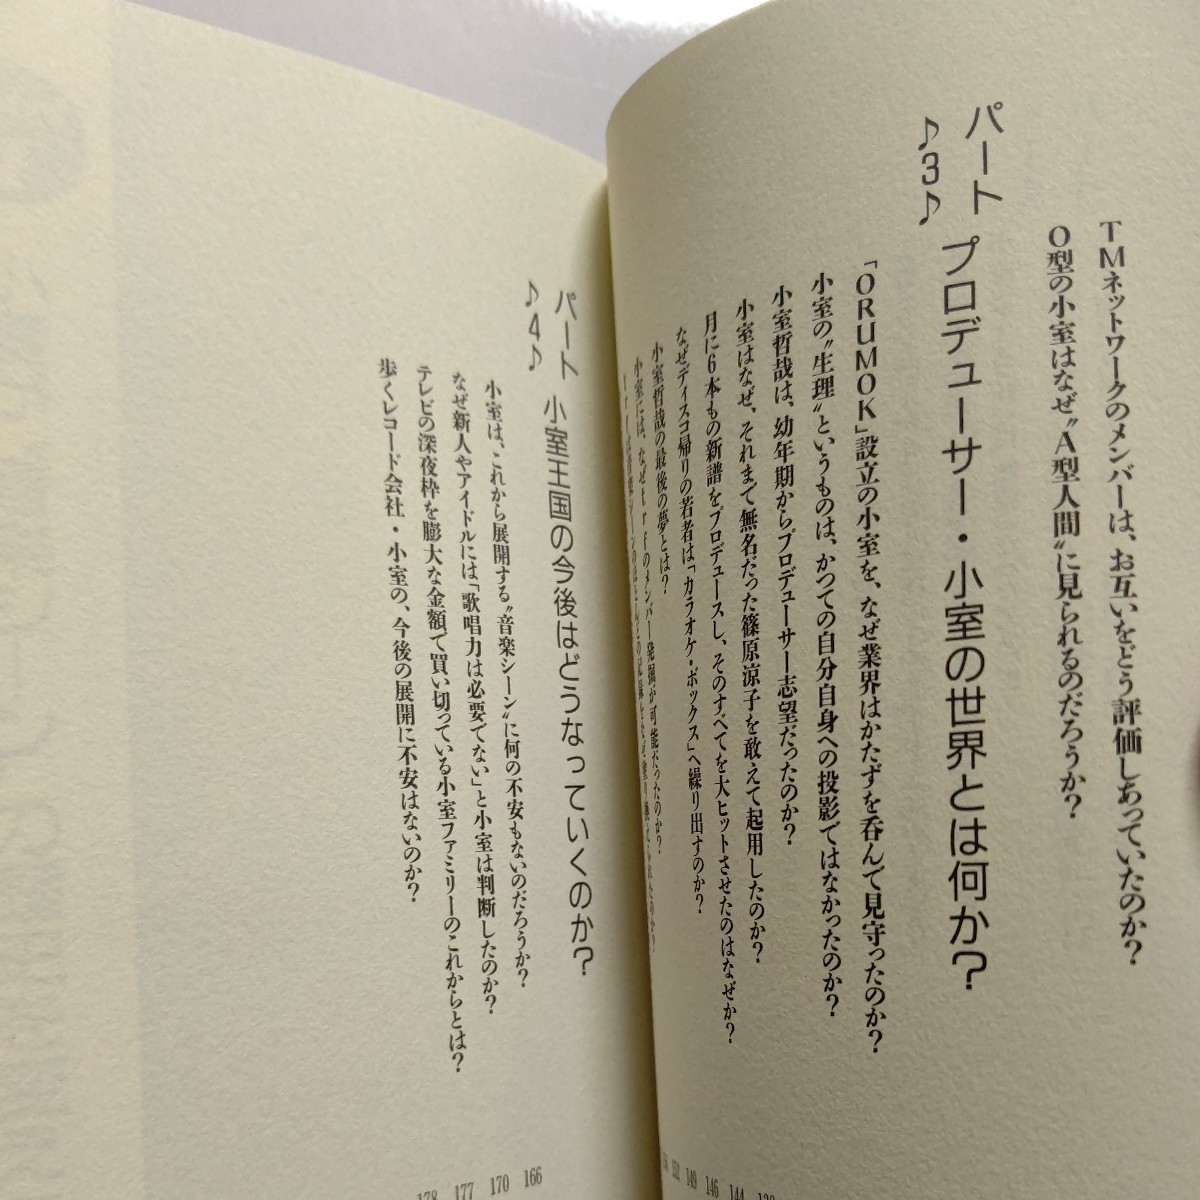 TMネットワークのメンバーは、お互いをどう評価しあっていたのか?
O型の小室はなぜ“A型人間”に見られるのだろうか?
パート
♪3♪
プロデューサー・小室の世界とは何か?
「ORUMOK」設立の小室を、なぜ業界はかたずを呑んで見守ったのか?
小室の“生理”というものは、かつての自分自身への投影ではなかったのか?
小室哲哉は、幼年期からプロデューサー志望だったのか?
小室はなぜ、それまで無名だった篠原涼子を敢えて起用したのか?
月に6本もの新譜をプロデュースし、そのすべてを大ヒットさせたのはなぜか?
なぜディスコ帰りの若者は「カラオケ・ボックス」へ繰り出すのか?
小室哲哉の最後の夢とは?
小室には、なぜtrfのメンバー発掘が可能だったのか?
144
146
149
152
パート
♪4♪
小室王国の今後はどうなっていくのか?
小室は、これから展開する“音楽シーン”に何の不安もないのだろうか?
なぜ新人やアイドルには「歌唱力は必要でない」と小室は判断したのか?
テレビの深夜枠を膨大な金額で買い切っている小室ファミリーのこれからとは?
歩くレコード会社・小室の、今後の展開に不安はないのか?
166
170
177
178